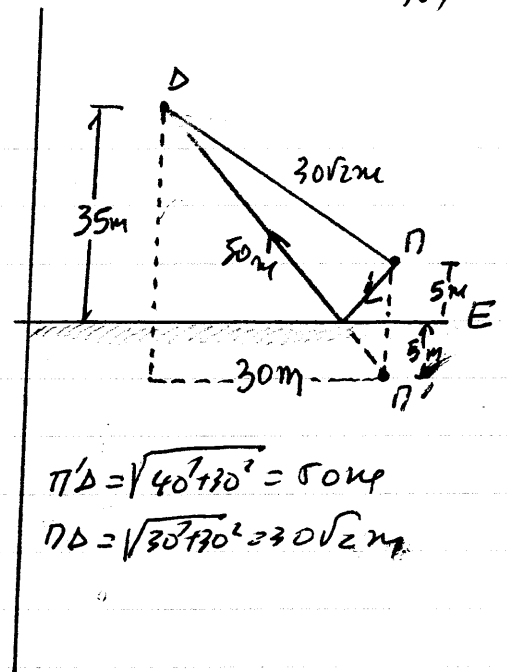 Δ
30√2m
35m
50m
Π
5m
E
5m
30m
Π'
Π'Δ = √40²+30² = 50m
ΠΔ = √30²+30² = 30√2 m